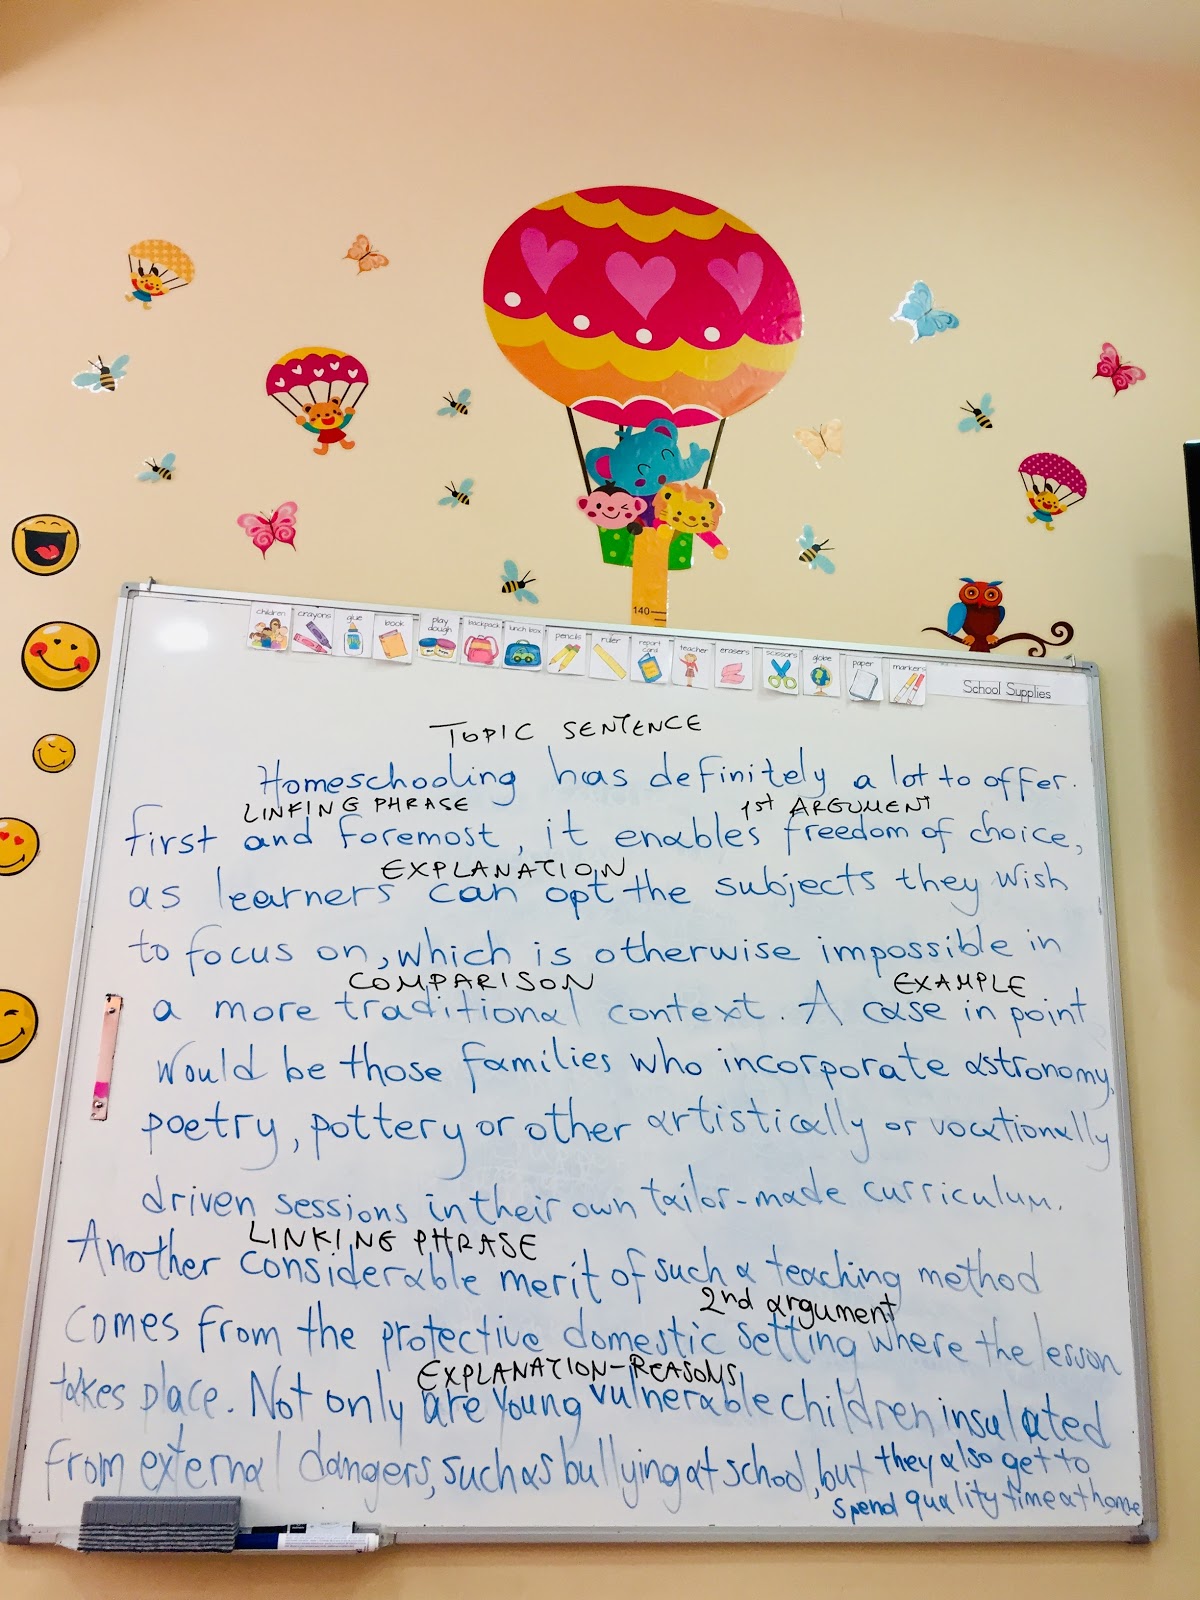 140
children crayons glue book play dough backpack lunch box pencils ruler report card teacher erasers scissors globe paper markers School Supplies
TOPIC SENTENCE
Homeschooling has definitely a lot to offer.
LINKING PHRASE 1st ARGUMENT
first and foremost, it enables freedom of choice,
EXPLANATION
as learners can opt the subjects they wish
to focus on, which is otherwise impossible in
COMPARISON EXAMPLE
a more traditional context. A case in point
would be those families who incorporate astronomy,
poetry, pottery or other artistically or vocationally
driven sessions in their own tailor-made curriculum.
LINKING PHRASE
Another considerable merit of such a teaching method
2nd argument
comes from the protective domestic setting where the lesson
EXPLANATION-REASONS
takes place. Not only are young vulnerable children insulated
from external dangers, such as bullying at school, but they also get to
spend quality time at home